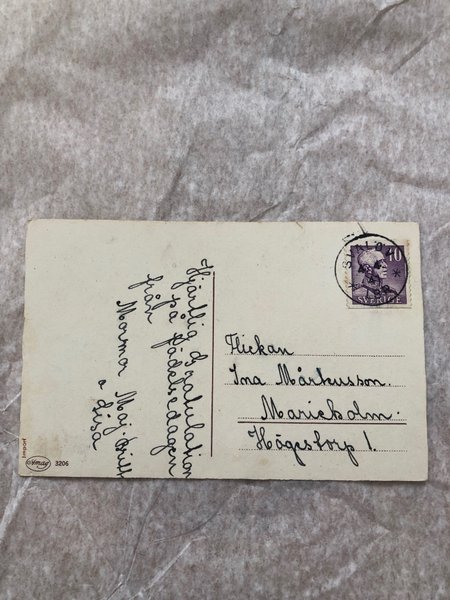 Hjärtlig Gratulation
på födelsedagen
från
Mormor Maj-Britt
o Gösa
40
SVERIGE
Flickan
Ina Mårtensson.
Marieholm.
Högestorp 1.
Import
3206